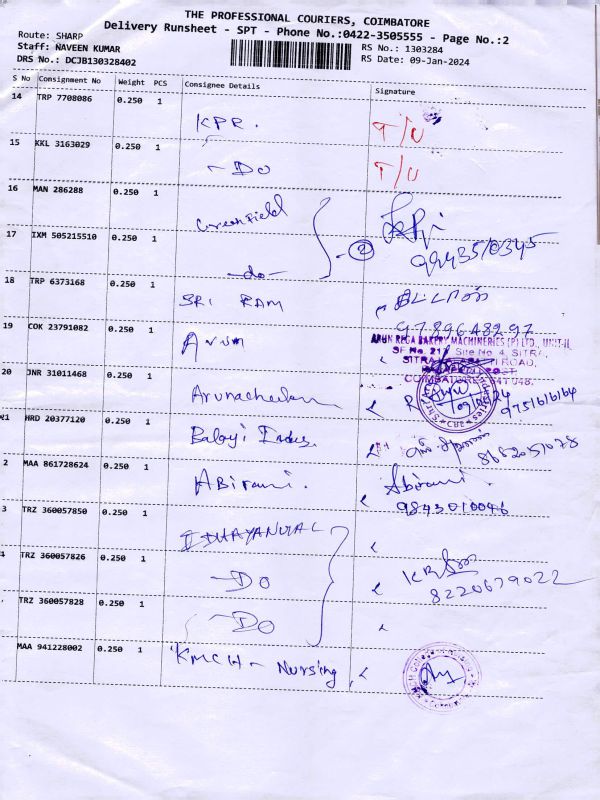 THE PROFESSIONAL COURIERS, COIMBATORE
Delivery Runsheet - SPT - Phone No.:0422-3505555 - Page No.:2
Route: SHARP
Staff: NAVEEN KUMAR
DRS No.: DCJB130328402
RS No.: 1303284
RS Date: 09-Jan-2024
S No Consignment No Weight PCS Consignee Details Signature
14 TRP 7708086 0.250 1 KPR. T/U
15 KKL 3163029 0.250 1 -DO T/U
16 MAN 286288 0.250 1 Greenfield
17 IXM 505215510 0.250 1 -do- 2
18 TRP 6373168 0.250 1 SRI RAM
9789648297
19 COK 23791082 0.250 1 Arum
ARUN REGA BAKERY MACHINERIES (P) LTD., UNIT-II
SF No. 21/ Site No 4, SITRA,
20 JNR 31011468 0.250 1 Arunachalam
21 HRD 20377120 0.250 1 Balaji Indus.
2 MAA 861728624 0.250 1 ABirami. Abirami
9843010046
3 TRZ 360057850 0.250 1
TRZ 360057826 0.250 1 -DO
8220679022
TRZ 360057828 0.250 1 -DO
MAA 941228002 0.250 1 KMCH - Nursing